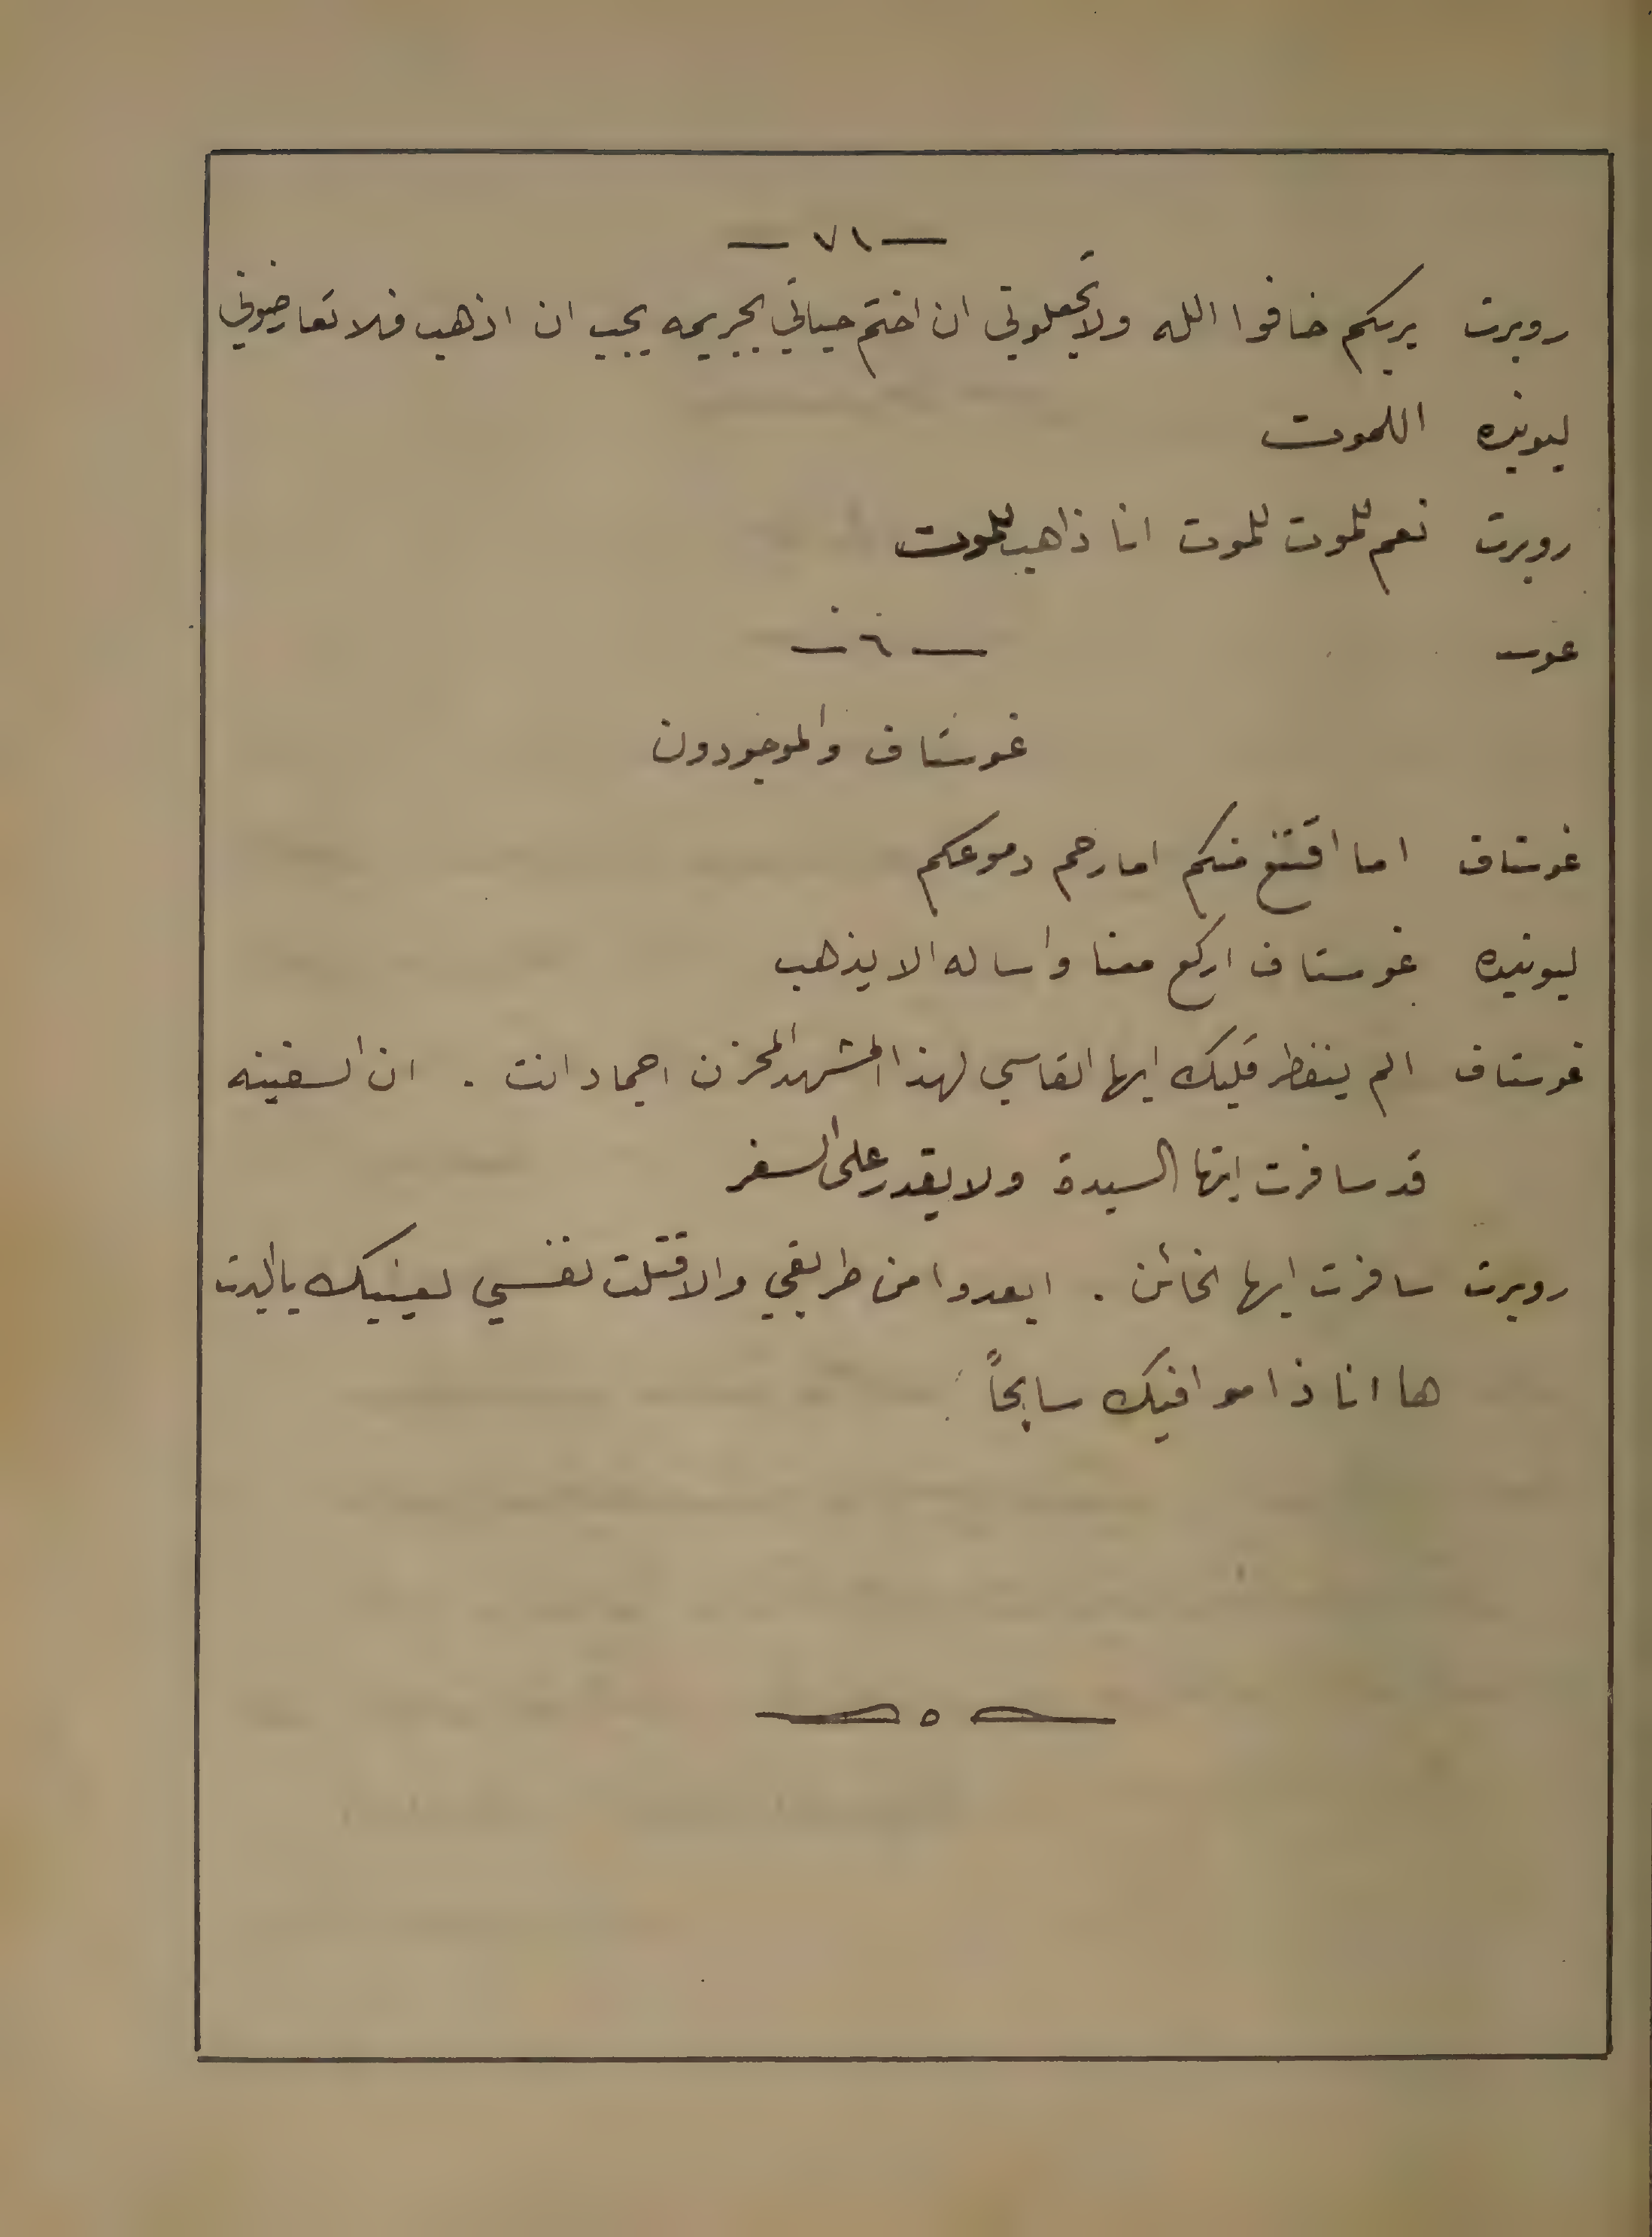 — ٧١ —
روبرت بربكم خافوا الله ولا تجعلوني ان اختم حياتي بجريمه يجب ان اذهب فلا تعارضوني
ليونيده اللموت
روبرت نعم للموت للموت انا ذاهب للموت
— ٦ —
غوستاف والموجودون
غوستاف اما اقتنع منكم امارحم دموعكم
ليونيده غوستاف اركع معنا واساله الا يذهب
غوستاف الم ينفطر قلبك ايها القاسي لهذا المشهد المحزن اجماد انت . ان السفينه
قد سافرت ايتها السيدة ولا يقدر على السفر
روبرت سافرت ايها الخائن . ابعدوا من طريقي والا قتلت نفسي لعينيك يا البرت
ها انا ذا موافيك سابحاً